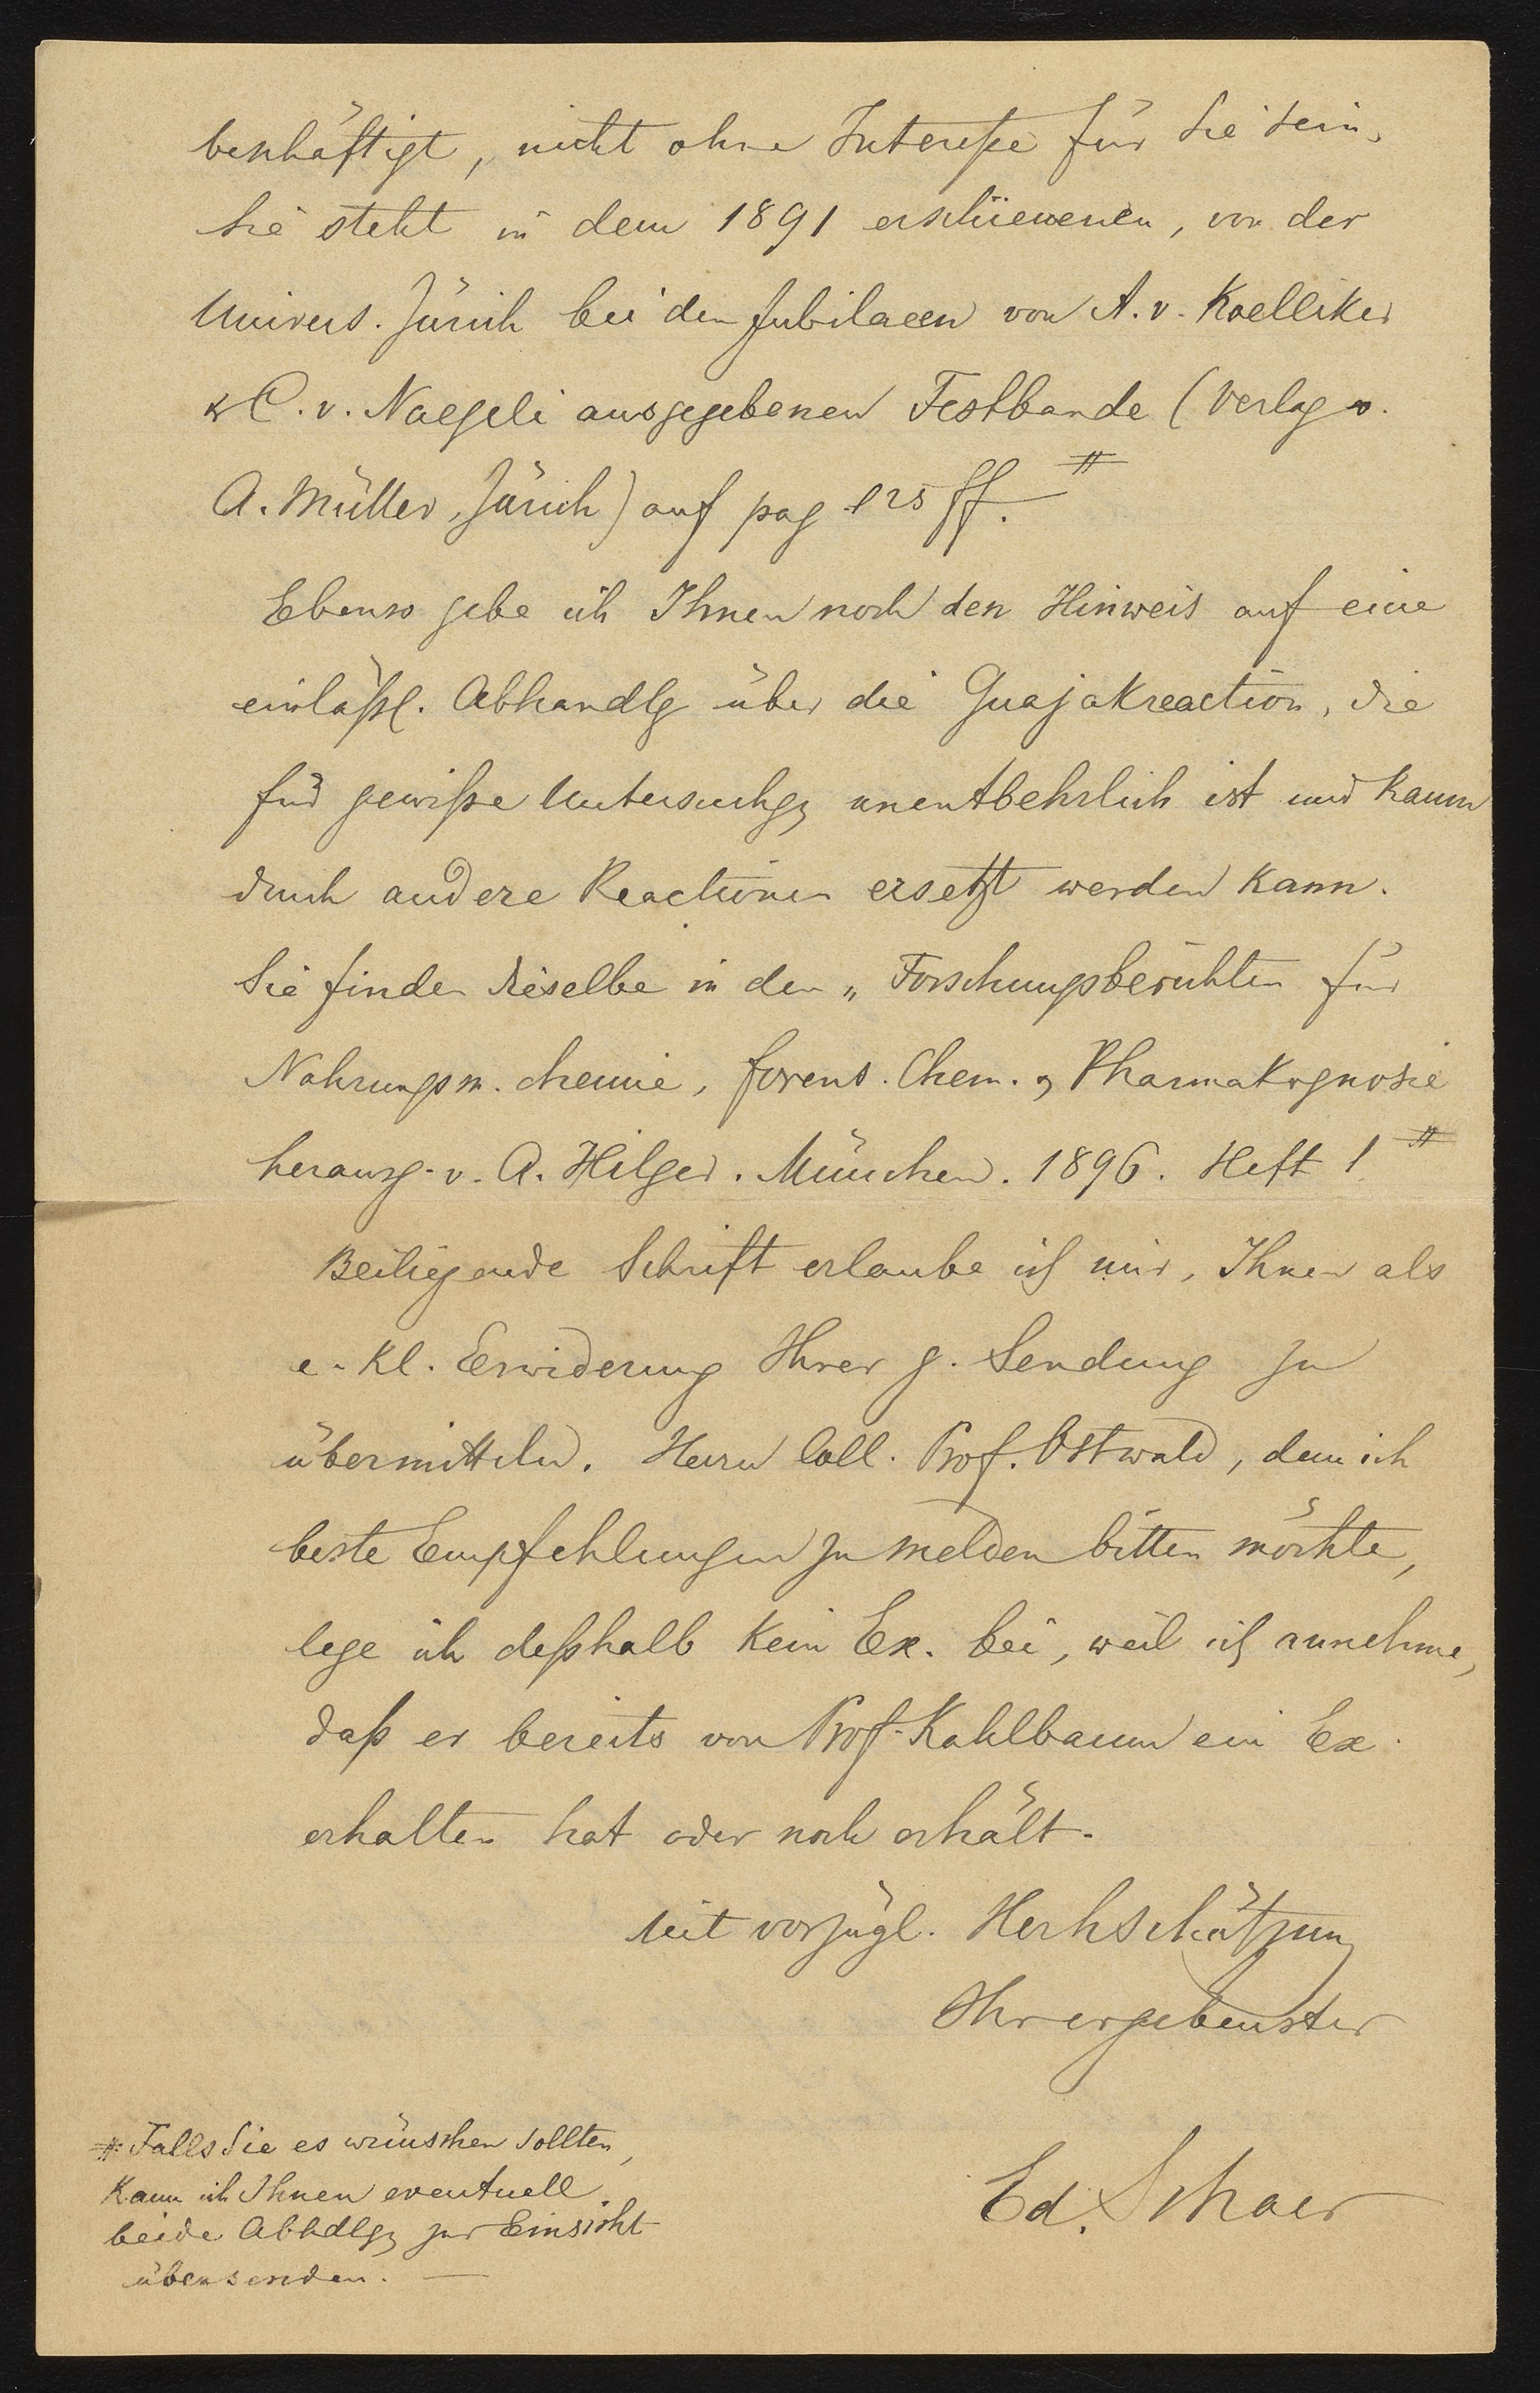 beschäftigt, nicht ohne Intereße für Sie sein.
Sie steht in dem 1891 erschienenen, von der
Univers. Zürich bei den Jubilaeen von A. v. Koelliker
& C. v. Naegeli ausgegebenen Festbande (Verlag v.
A. Müller, Zürich) auf pag 125 ff. #
Ebenso gebe ich Ihnen noch den Hinweis auf eine
einläßl. Abhandlg über die Guajakreaction, die
für gewiße Untersuchgg unentbehrlich ist und kaum
durch andere Reactionen ersetzt werden kann.
Sie finden dieselbe in den „Forschungsberichten für
Nahrungsm. chemie, forens. Chem. & Pharmakognosie
herausg. v. A. Hilger. München. 1896. Heft 1 #
Beiliegende Schrift erlaube ich mir, Ihnen als
e. kl. Erwiderung Ihrer g. Sendung zu
übermitteln. Herrn Coll. Prof. Ostwald, dem ich
beste Empfehlungen zu melden bitten möchte,
lege ich deßhalb kein Ex. bei, weil ich annehme,
daß er bereits von Prof. Kahlbaum ein Ex.
erhalten hat oder noch erhält.
Mit vorzügl. Hochschätzung
Ihr ergebenster
Ed. Schaer
# Falls Sie es wünschen sollten,
kann ich Ihnen eventuell
beide Abhdlgg zur Einsicht
übersenden. —